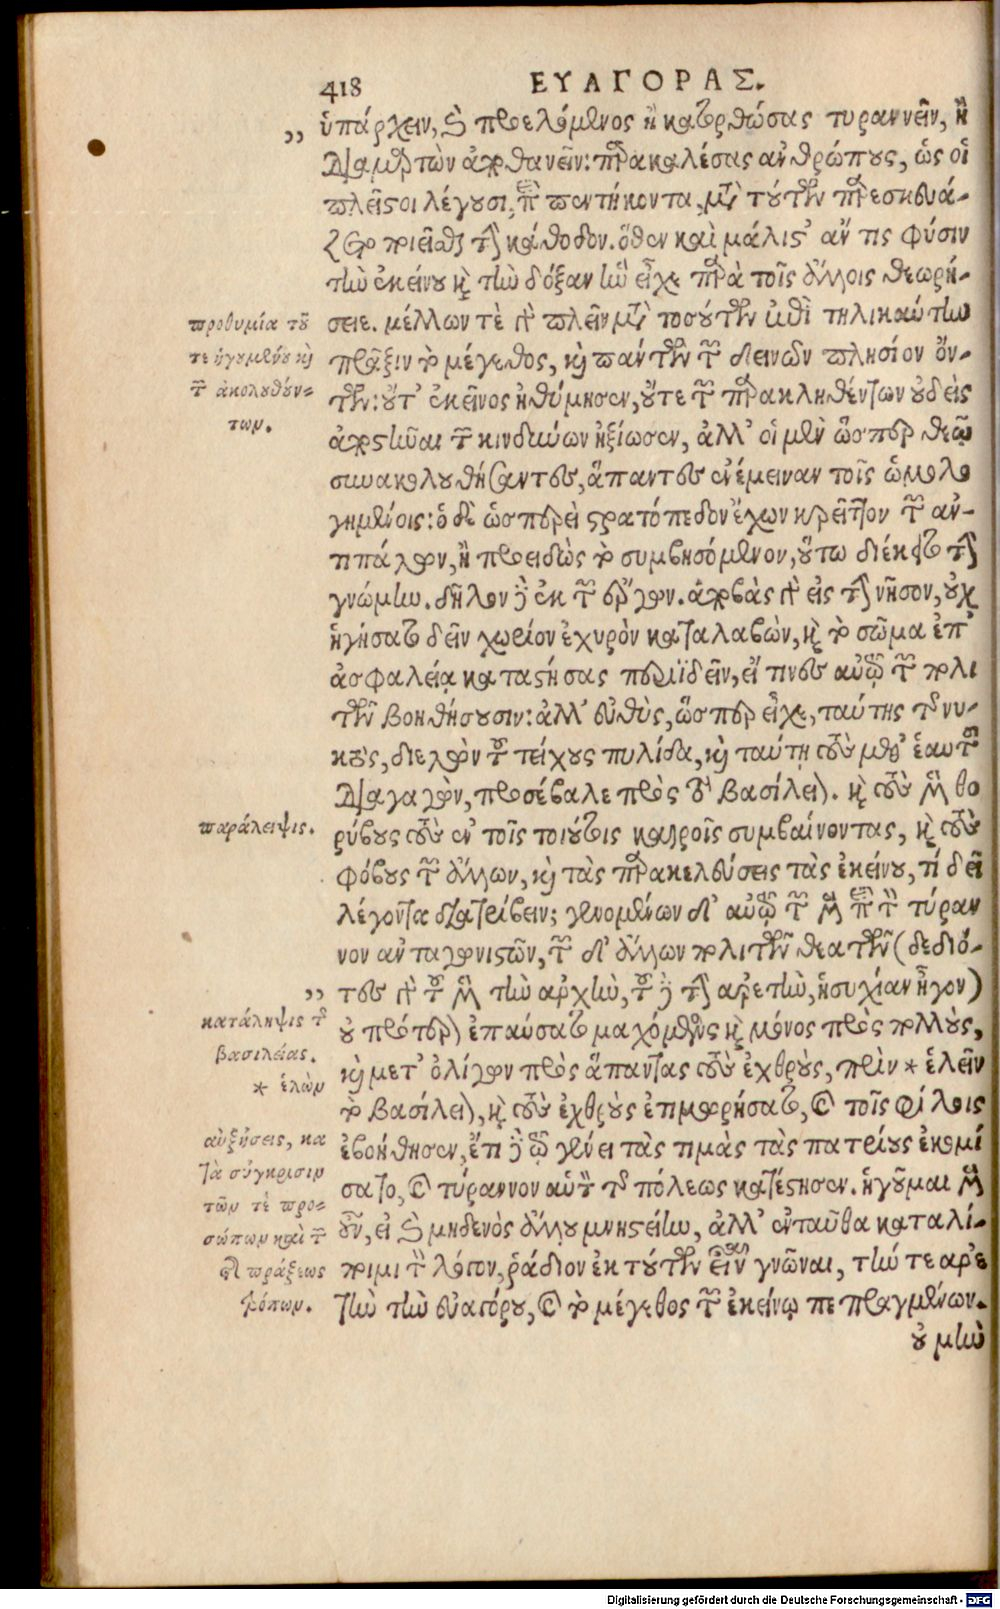 418 ΕΥΑΓΟΡΑΣ.
,, ὑπάρχειν, καὶ προελόμενος ἢ κατορθώσας τυραννεῖν, ἢ
διαμαρτὼν ἀποθανεῖν: παρακαλέσας ἀνθρώπους, ὡς οἱ
πλεῖστοι λέγουσι, περὶ πεντήκοντα, μετὰ τούτων παρεσκευά-
ζετο ποιεῖσθαι τὴν κάθοδον. ὅθεν καὶ μάλιστ' ἄν τις φύσιν
τὴν ἐκείνου καὶ τὴν δόξαν ἣν εἶχε παρὰ τοῖς ἄλλοις θεωρή-
σειε. μελλόντων τὲ γὰρ πλεῖν μετὰ τοσούτων ἐπὶ τηλικαύτην
πρᾶξιν τὸ μέγεθος, καὶ πάντων τῶν δεινῶν πλησίον ὄν-
των: οὔτ' ἐκεῖνος ἠθύμησεν, οὔτε τῶν παρακληθέντων οὐδεὶς
ἀποστῆναι τῶν κινδύνων ἠξίωσεν, ἀλλ' οἱ μὲν ὥσπερ θεῷ
συνακολουθήσαντες, ἅπαντες ἐνέμειναν τοῖς ὡμολο
γημένοις: ὁ δὲ ὡσπερεὶ στρατόπεδον ἔχων κρεῖττον τῶν ἀν-
τιπάλων, ἢ προειδὼς τὸ συμβησόμενον, οὕτω διέκειτο τὴν
γνώμην. δῆλον δ' ἐκ τῶν ἔργων. ἀποβὰς γὰρ εἰς τὴν νῆσον, οὐχ
ἡγήσατο δεῖν χωρίον ἐχυρὸν καταλαβὼν, καὶ τὸ σῶμα ἐπ'
ἀσφαλείᾳ καταστήσας περιϊδεῖν, εἴ τινες αὐτῷ τῶν πολι
τῶν βοηθήσουσιν: ἀλλ' εὐθὺς, ὥσπερ εἶχε, ταύτης τῆς νυ-
κτὸς, διελὼν τοῦ τείχους πυλίδα, καὶ ταύτῃ τοὺς μεθ' ἑαυτοῦ
διαγαγὼν, προσέβαλε πρὸς τὸ βασίλειον. καὶ τοὺς μὲν θο
ρύβους τοὺς ἐν τοῖς τοιούτοις καιροῖς συμβαίνοντας, καὶ τοὺς
φόβους τῶν ἄλλων, καὶ τὰς παρακελεύσεις τὰς ἐκείνου, τί δεῖ
λέγοντα διατρίβειν; γενομένων δ' αὐτῷ τῶν μὲν περὶ τὸν τύραν
νον ἀνταγωνιστῶν, τῶν δ' ἄλλων πολιτῶν θεατῶν (δεδιό-
,, τες γὰρ τοῦ μὲν τὴν ἀρχὴν, τοῦ δὲ τὴν ἀρετὴν, ἡσυχίαν ἦγον)
οὐ πρότερον ἐπαύσατο μαχόμενος καὶ μόνος πρὸς πολλοὺς,
καὶ μετ' ὀλίγων πρὸς ἅπαντας τοὺς ἐχθροὺς, πρὶν * ἑλεῖν
τὸ βασίλειον, καὶ τοὺς ἐχθροὺς ἐτιμωρήσατο, καὶ τοῖς φίλοις
ἐβοήθησεν, ἔτι δὲ τῷ γένει τὰς τιμὰς τὰς πατρίους ἐκομί
σατο, καὶ τύραννον αὑτὸν τῆς πόλεως κατέστησεν. ἡγοῦμαι μὲν
οὖν, εἰ καὶ μηδενὸς ἄλλου μνησθείην, ἀλλ' ἐνταῦθα καταλί-
ποιμι τὸν λόγον, ῥᾴδιον ἐκ τούτων εἶναι γνῶναι, τήν τε ἀρε
τὴν τὴν Εὐαγόρου, καὶ τὸ μέγεθος τῶν ἐκείνῳ πεπραγμένων.
οὐ μὴν
προθυμία τοῦ
τε ἡγουμένου καὶ
τῶν ἀκολουθούν-
των.
παράλειψις.
κατάληψις τῆς
βασιλείας.
* ἑλὼν
αὐξήσεις, κα
τὰ σύγκρισιν
τῶν τὲ προ-
σώπων καὶ τῶν
τῆς πράξεως
τρόπων.
Digitalisierung gefördert durch die Deutsche Forschungsgemeinschaft - DFG